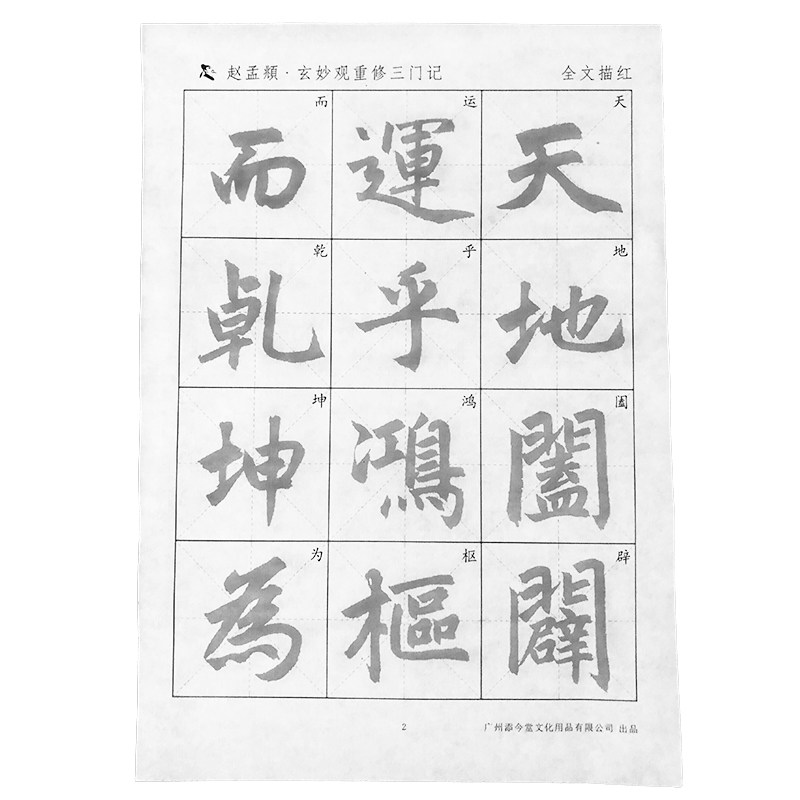 赵孟頫·玄妙观重修三门记
全文描红
天地闔闢
天地阖辟
運乎鴻樞
运乎鸿枢
而乾坤為
而乾坤为
2
广州添今堂文化用品有限公司 出品